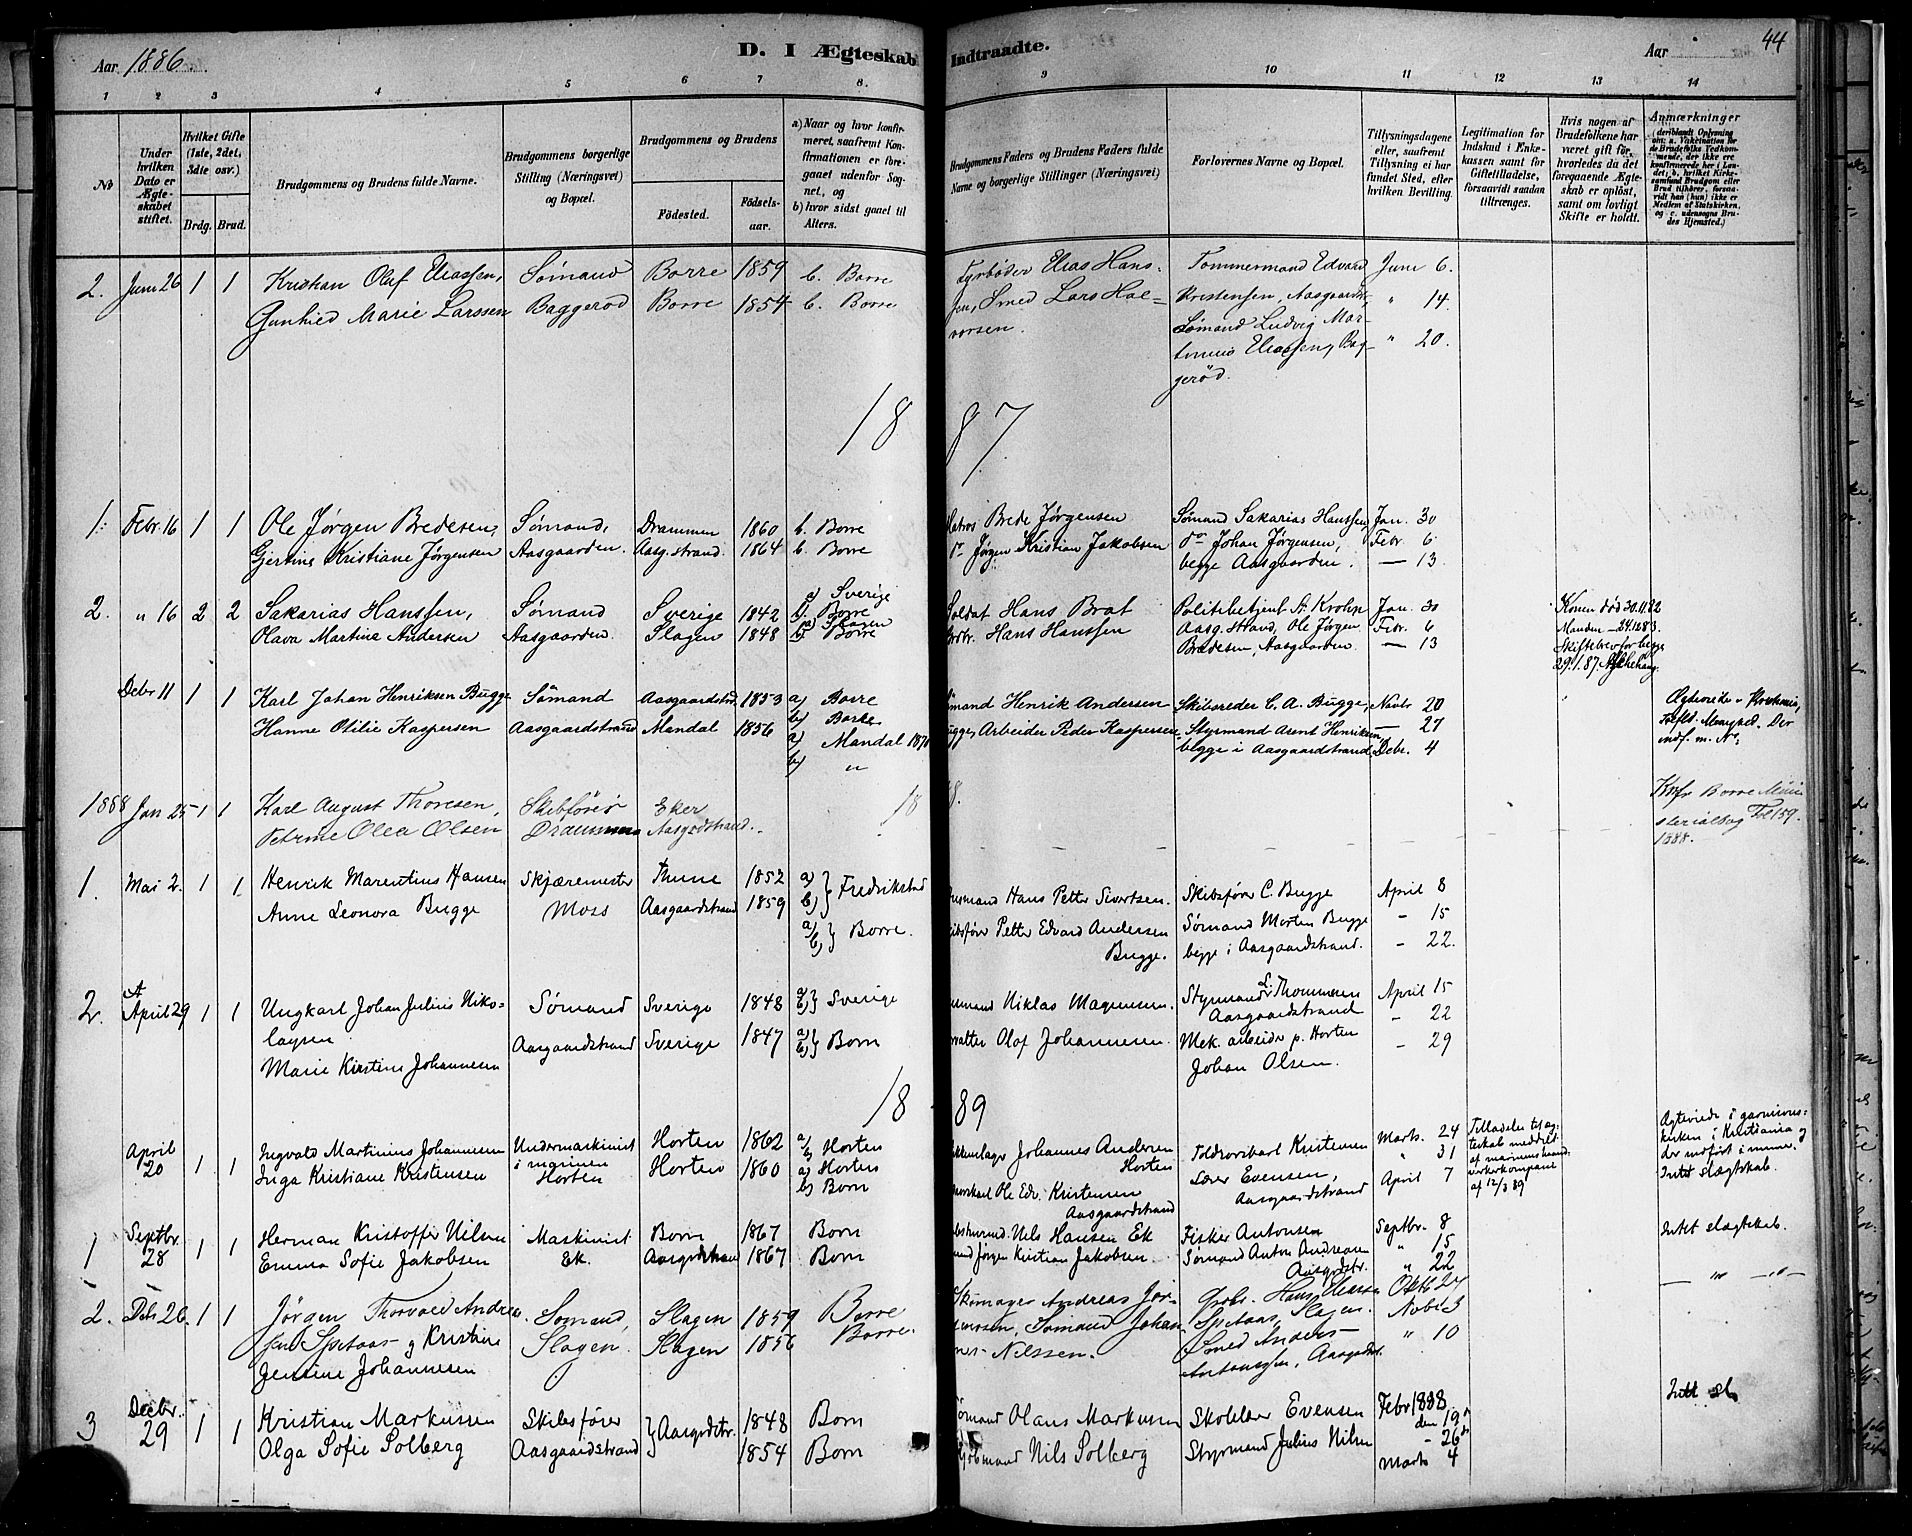 Aar 1886. D. I Ægteskab Indtraadte. Aar 44
1 2 3 4 5 6 7 8. 9 10 11 12 13 14
No
Under hvilken Dato er Ægteskabet stiftet.
Hvilket Gifte (1ste, 2det, 3die osv.)
Brdg. Brud.
Brudgommens og Brudens fulde Navne.
Brudgommens borgerlige Stilling (Næringsvei) og Bopæl.
Brudgommens og Brudens
Fødested. Fødselsaar.
a) Naar og hvor konfirmeret, saafremt Konfirmationen er foregaaet udenfor Sognet, og
b) hvor sidst gaaet til Alters.
Brudgommens Faders og Brudens Faders fulde Navne og borgerlige Stillinger (Næringsvei)
Forlovernes Navne og Bopæl.
Tillysningsdagene eller, saafremt Tillysning ei har fundet Sted, efter hvilken Bevilling.
Legitimation for Indskud i Enkekassen samt for Giftetilladelse, forsaavidt saadan tiltrænges.
Hvis nogen af Brudefolkene har været gift før, hvorledes da det foregaaende Ægteskab er opløst, samt om lovligt Skifte er holdt.
Anmærkninger
2. Juni 26 1 1 Kristian Olaf Eliassen, Sømand Borre 1859 b. Borre Fyrbøder Elias Hans- Tømmermand Edvard Juni 6.
Gunhild Marie Larssen Baggerød Borre 1854 b. Borre sen, Smed Lars Hal- Kristensen, Aasgaardst. " 14.
vorsen. Sømand Ludvig Mar-
tinius Eliassen, Bag- " 20.
gerød.
18 87
1: Febr. 16 1 1 Ole Jørgen Bredesen, Sømand, Drammen 1860 b. Borre Matros Brede Jørgensen Sømand Sakarias Hanssen, Jan. 30
Gjertine Kristiane Jørgensen Aasgaarden. Aasg.strand. 1864 b. Borre do Jørgen Kristian Jakobsen do Johan Jørgensen, Febr. 6
begge Aasgaarden. — 13.
2. " 16 2 2 Sakarias Hanssen, Sømand Sverige 1842 a) Sverige b) Borre Soldat Hans Brat Politibetjent A. Krohn Jan. 30 Konen død 30.11.82
Olava Martina Andersen Aasgaarden. Slagen 1848 a) Slagen b) Borre Hans Hanssen Aasg.strand, Ole Jørgen Febr. 6 Manden — 24.12.83.
Bredesen, Aasgaarden — 13 Skiftebrev for begge
29.1.87
Debr 11 1 1 Karl Johan Henriksen Bugge Sømand Aasgaardstrd. 1853 a) Borre Sømand Henrik Andersen Skibsreder C. A. Bugge, Novbr 20
Hanne Otilie Kaspersen Aasgaardstrand Mandal 1856 b) Borre Bugge, Arbeider Peder Kaspersen Styrmand Arent Henriksen, — 27
a) Mandal begge i Aasgaardstrand. Debr. 4
b) "
1888 Jan 25 1 1 Karl August Thoresen, Skibsfører Eker 18 Borre Mini-
Petrine Olea Olsen Drammen Aasgdstrand. sterialbog Fol 159.
1888.
1. Mai 2. 1 1 Henrik Marentius Hansen Skjæremester Thune 1852 a) b) Fredrikstad Husmand Hans Petter Sivertsen. Skibsfører C. Bugge April 8
Anne Leonora Bugge Moss Aasgaardstrand 1859 a) b) Borre. Skibsfører Petter Edvard Andersen Sømand Morten Bugge - 15
Bugge. begge i Aasgaardstrand. - 22.
2. April 29 1 1 Ungkarl Johan Julius Niko- Sømand Sverige 1848 a) b) Sverige Niklas Magnussen. Styrmand L. Thommesen April 15
laysen Aasgaardstrand - 22
Marie Kirstine Johannesen Aasgaardstrand Sverige 1847 a) b) Borre Olof Johannesen. Mek. arbeider p. Horten - 29
Johan Olsen.
18 89
April 20 1 1 Ingvald Martinius Johannesen Undermaskinist Horten 1862 a) b) Horten Johannes Andersen Toldrorskarl Kristensen Marts. 24 Tilladelse til æg-
Inga Kristiane Kristensen i marinen Horten Horten 1860 a) Horten Horten Lærer Evensen, " 31 teskab meddelt
b) Borre Ole Edv. Kristensen Aasgaardstrand April 7 af marinens haand-
Aasgaardstrand verkerkompani
af 12/3 89
Ægteviede i garnisons-
kirken i Kristiania og
der indført i
Intet slægtskab.
1 Septbr. 28 1 1 Herman Kristoffer Nilsen Maskinist Borre 1867 Borre Nils Hansen Ek Fisker Antonsen Septbr. 8 Intet slægtskab.
Emma Sofie Jakobsen Ek. Aasgrdstrand 1867 Borre Jørgen Kristian Jakobsen. Sømand Anton Andresen " 15
Aasgrdstr. " 22
2. Debr 26. 1 1 Jørgen Thorvald Andrea- Sømand, Slagen 1859 Borre Skomager Andreas Jør- Hans Eliassen Oktb 27 — " — " —
sen Spetaas og Kristine Slagen. Slagen 1856 Borre. gensen, Sømand Johan- Spetaas, Slagen. Novbr 3
Jensine Johannesen nes Nilssen. Smed Anders " 10
Antonssen, Aasgrdst.
3 Decbr. 29 1 1 Kristian Markussen Skibsfører Aasgrdstr. 1848 Borre Sømand Olaus Markussen Skolelærer Evensen Febr 1888. Intet sl.
den 19de
Olga Sofie Solberg Aasgaardstrand 1854 Borre Nils Solberg Styrmand Julius Nilsen - 26de
Marts 4